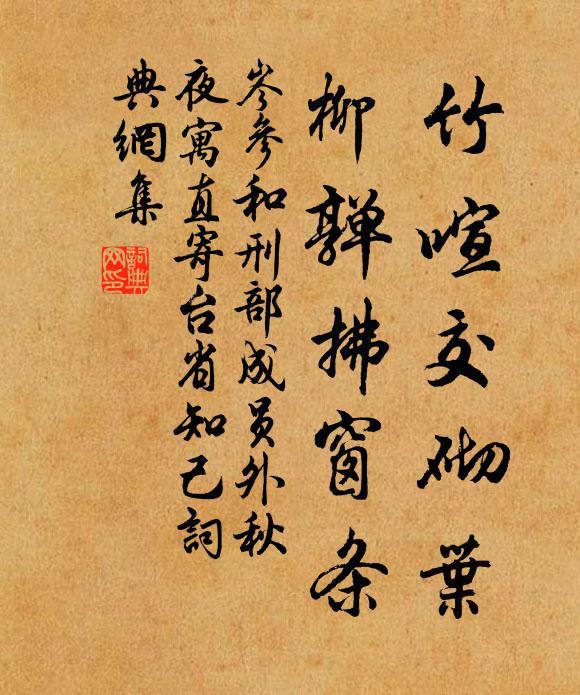 竹喧交砌葉
柳亸拂窗条
岑參和刑部成员外秋
夜寓直寄台省知己詞
典網集
詞典
网印